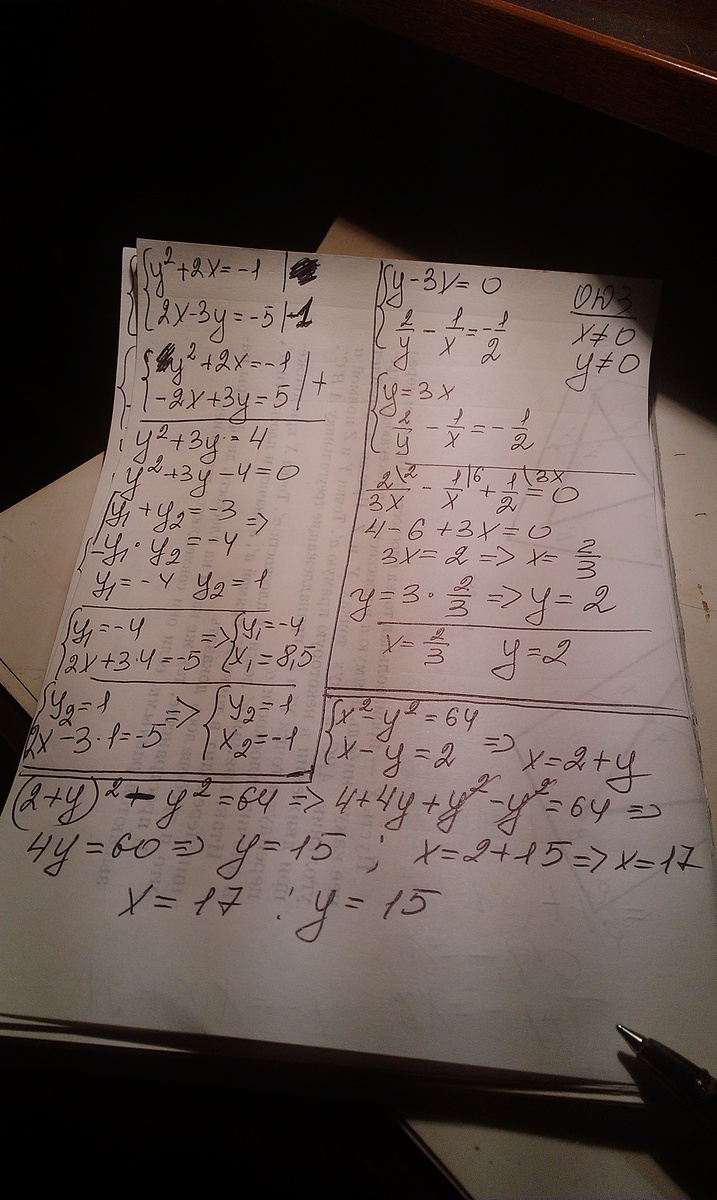 {y² + 2x = -1 |
{2x - 3y = -5 | -1
{y² + 2x = -1
{-2x + 3y = 5 | +
y² + 3y = 4
y² + 3y - 4 = 0
{y₁ + y₂ = -3 =>
{y₁ · y₂ = -4
y₁ = -4 y₂ = 1
{y₁ = -4 => {y₁ = -4
{2x + 3·4 = -5 {x₁ = 8,5
{y₂ = 1 => {y₂ = 1
{2x - 3·1 = -5 {x₂ = -1
{y - 3x = 0 ОДЗ
{2/y - 1/x = -1/2 x ≠ 0
y ≠ 0
{y = 3x
{2/y - 1/x = -1/2
2\2/3x - 1|6/x + 1\3x/2 = 0
4 - 6 + 3x = 0
3x = 2 => x = 2/3
y = 3 · 2/3 => y = 2
x = 2/3 y = 2
{x² - y² = 64
{x - y = 2 => x = 2 + y
(2+y)² - y² = 64 => 4 + 4y + y² - y² = 64 =>
4y = 60 => y = 15 ; x = 2 + 15 => x = 17
x = 17 ; y = 15